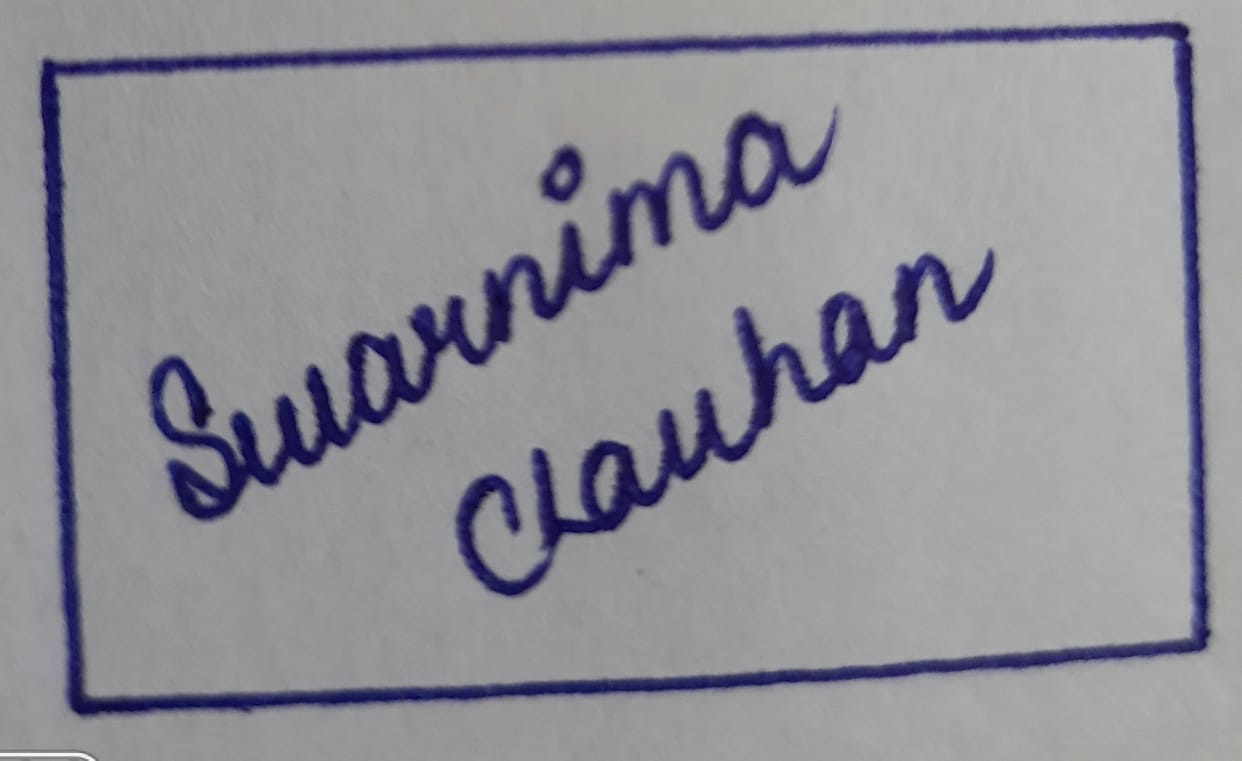 Swarnima
Chauhan